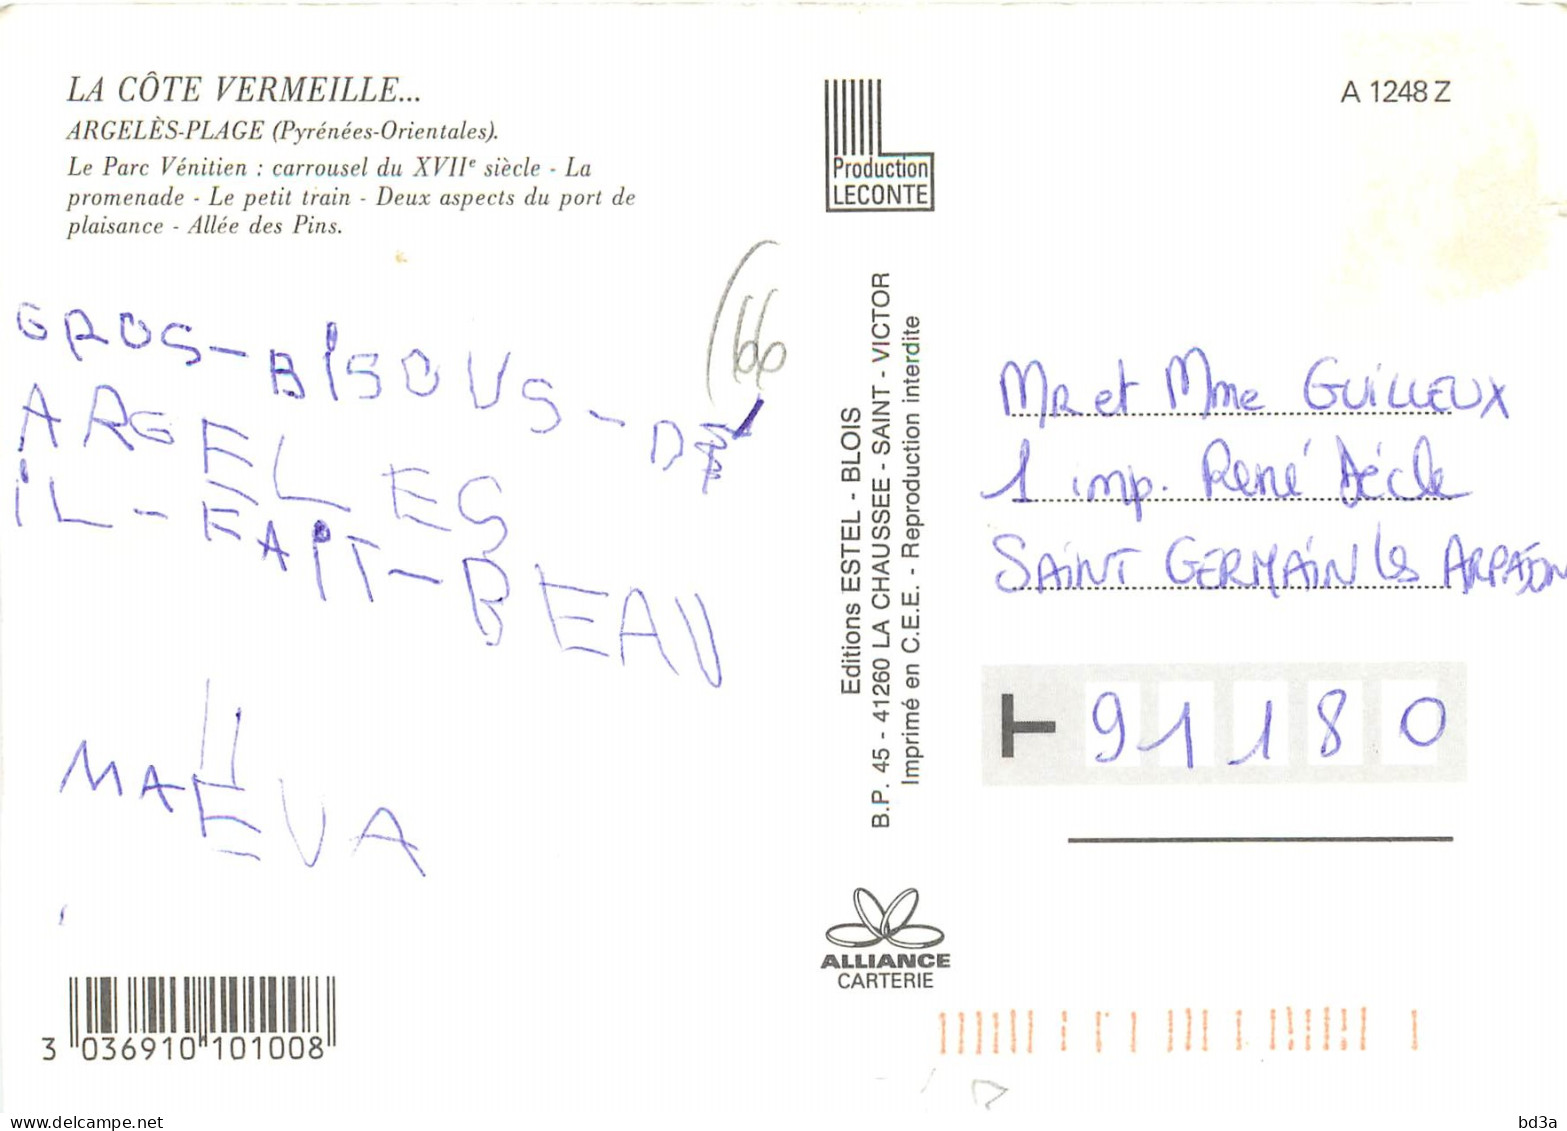 LA CÔTE VERMEILLE...
ARGELÈS-PLAGE (Pyrénées-Orientales).
Le Parc Vénitien : carrousel du XVIIe siècle - La
promenade - Le petit train - Deux aspects du port de
plaisance - Allée des Pins.
(66
GROS-BISOUS-DE
ARGELES
iL-FAIT-BEAU
MAËVA
3 036910 101008
Production
LECONTE
Editions ESTEL - BLOIS
B.P. 45 - 41260 LA CHAUSSEE - SAINT - VICTOR
Imprimé en C.E.E. - Reproduction interdite
ALLIANCE
CARTERIE
A 1248 Z
MR et Mme GUiLLEUX
1 imp. René Dècle
SAiNT GERMAiN les ARPAJON
T 91180
www.delcampe.net
bd3a